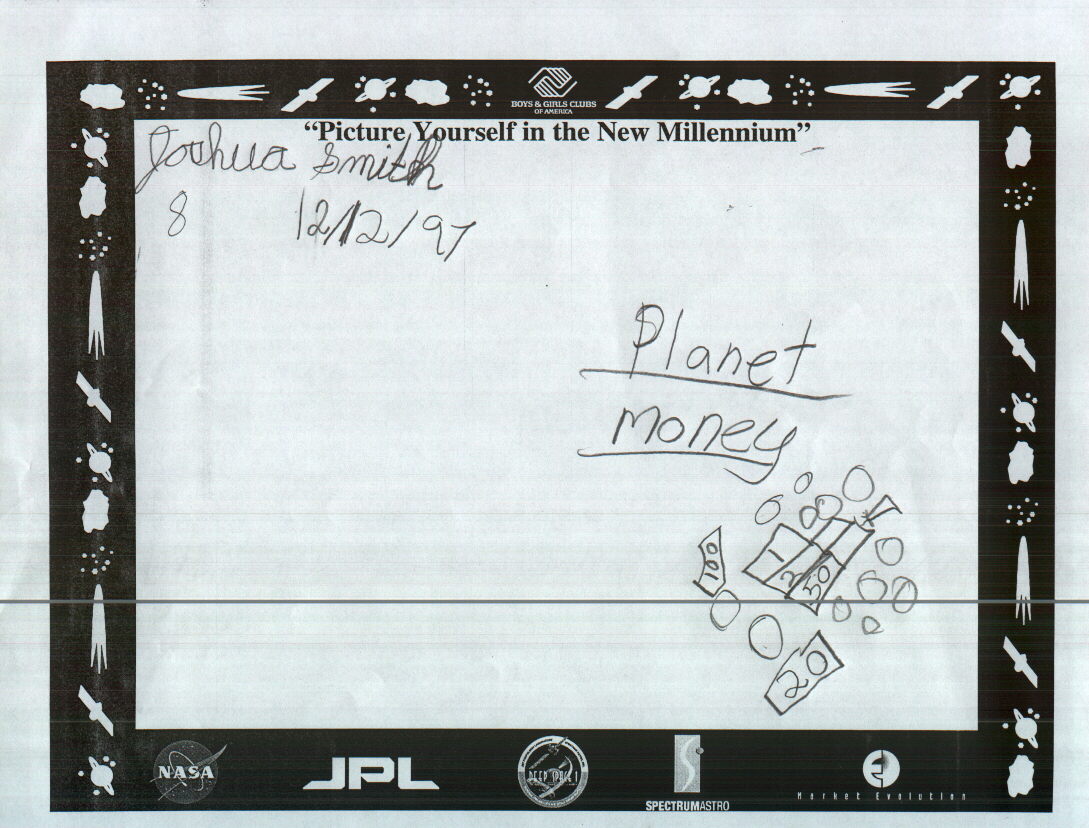 BOYS & GIRLS CLUBS
OF AMERICA
“Picture Yourself in the New Millennium”
Joshua Smith
8 12/12/97
Planet
money
100
1
2
50
20
NASA
JPL
DEEP SPACE 1
SPECTRUMASTRO
Market Evolution